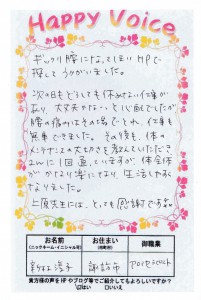 Happy Voice
ギックリ腰になってしまい HPで
探してうかがいました。
次の日もどうしても休めない仕事が
あり、大丈夫かな…と心配でしたが
腰の痛みはその場でとれ、仕事も
無事できました。その後も、体の
メンテナンスの大切さを教えていただき
2Wに1回通っていますが、体全体
がかなり楽になり、生活しやすく
なりました。
上原先生には、とっても感謝です。
お名前 お住まい 御職業
(ニックネーム・イニシャル可) (市町村)
諏訪市 アロマセラピスト
貴方様の声をHPやブログ等でご紹介してもよろしいですか?
はい □いいえ